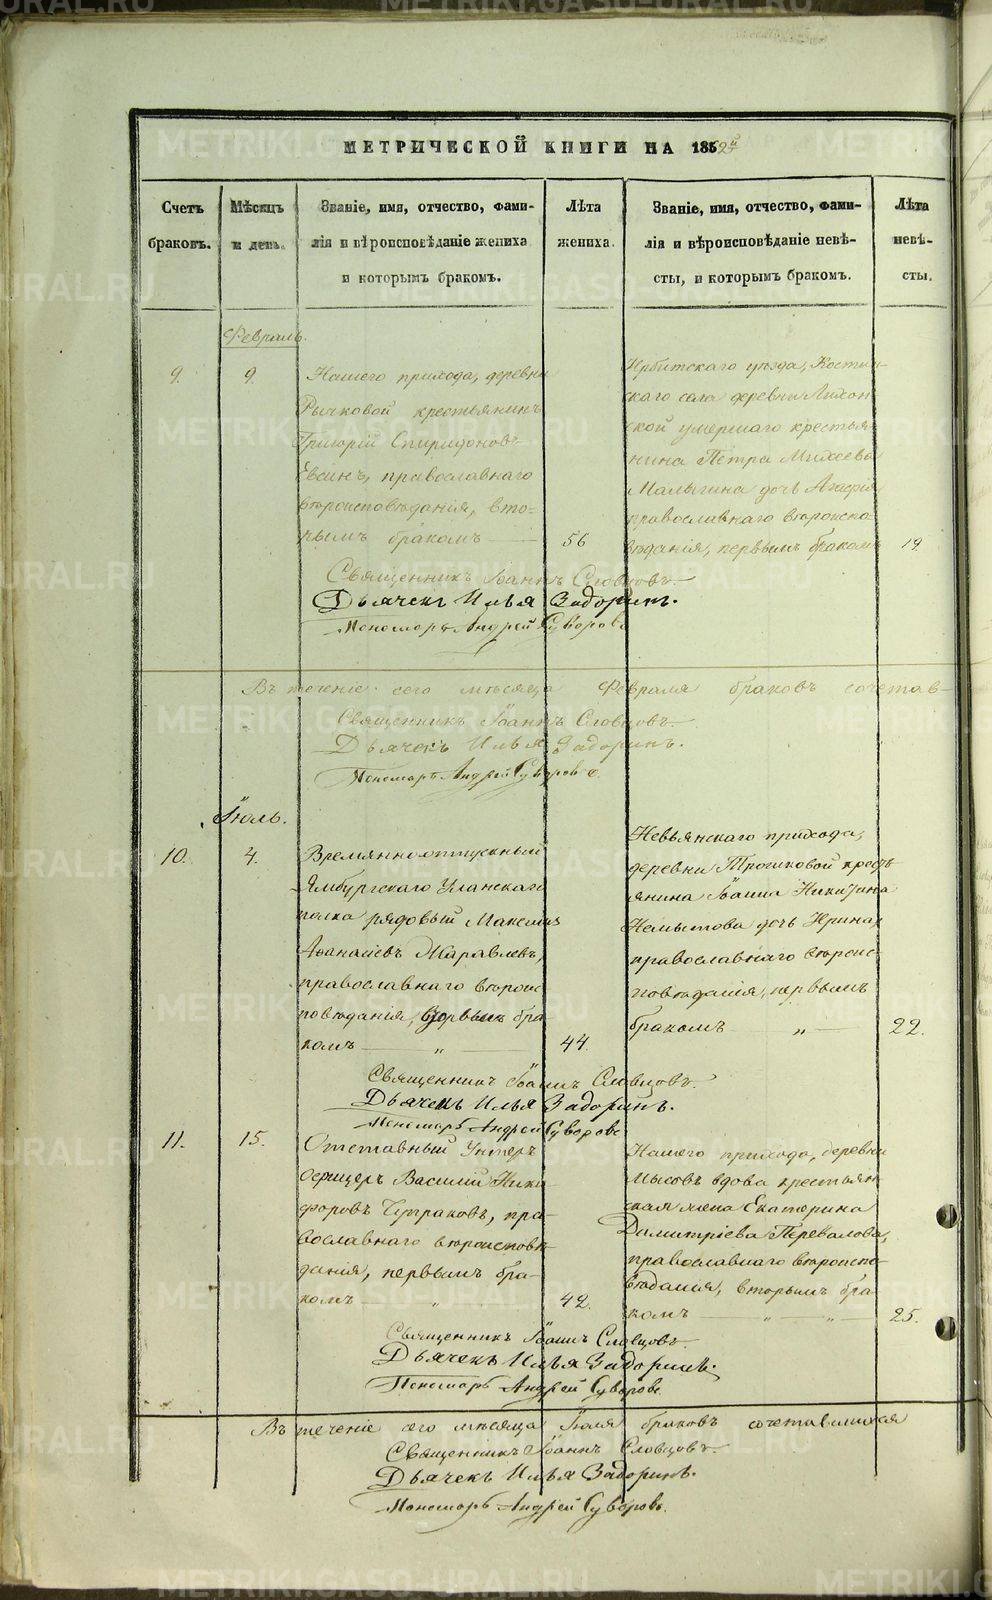 МЕТРИЧЕСКОЙ КНИГИ НА 1852й
Счетъ браковъ.
Мѣсяцъ и день.
Званіе, имя, отчество, фами-
лія и вѣроисповѣданіе жениха
и которымъ бракомъ.
Лѣта жениха.
Званіе, имя, отчество, фами-
лія и вѣроисповѣданіе невѣ-
сты, и которымъ бракомъ.
Лѣта невѣ-
сты.
Февраль.
9.
9.
Нашего прихода, деревни
Рычковой крестьянинъ
Григорій Спиридоновъ
Евсинъ, православнаго
вѣроисповѣданія, вто-
рымъ бракомъ
56
Ирбитскаго уѣзда, Костин-
скаго села деревни
ской умершаго крестья-
нина Петра Михеева
Малыгина дочь Агафія
православнаго вѣроиспо-
вѣданія, первымъ бракомъ
19.
Священникъ Іоаннъ Словцовъ.
Дьячекъ Илья Задоринъ.
Пономарь Андрей Суворовъ
Въ теченіе сего мѣсяца Февраля браковъ сочетав-
Священникъ Іоаннъ Словцовъ.
Дьячекъ Илья Задоринъ.
Пономарь Андрей Суворовъ.
Іюль.
10.
4.
Времянноотпускный
Ямбургскаго Уланскаго
полка рядовый Максимъ
Афанасіевъ Журавлевъ,
православнаго вѣроис
повѣданія, бра-
комъ „
44.
Невьянскаго прихода,
деревни Трошковой крестья
янина Іоанна Никитина
дочь Ирина,
православнаго вѣроис-
повѣданія, первымъ
бракомъ „
22.
Священникъ Іоаннъ Словцовъ.
Дьячекъ Илья Задоринъ.
Пономарь Андрей Суворовъ
11.
15.
Отставный Унтеръ
офицеръ Василій Ники-
форовъ пра-
вославнаго вѣроисповѣ-
данія, первымъ бра-
комъ „
42.
Нашего прихода, деревни
Мысовъ вдова крестьян-
ская жена Екатерина
Димитріева Перевалова,
православнаго вѣроиспо-
вѣданія, вторымъ бра-
комъ „ „
25.
Священникъ Іоаннъ Словцовъ.
Дьячекъ Илья Задоринъ.
Пономарь Андрей Суворовъ
Въ теченіе сего мѣсяца Іюля браковъ сочетавшихся
Священникъ Іоаннъ Словцовъ.
Дьячекъ Илья Задоринъ.
Пономарь Андрей Суворовъ.
METRIKI.GASO-URAL.RU